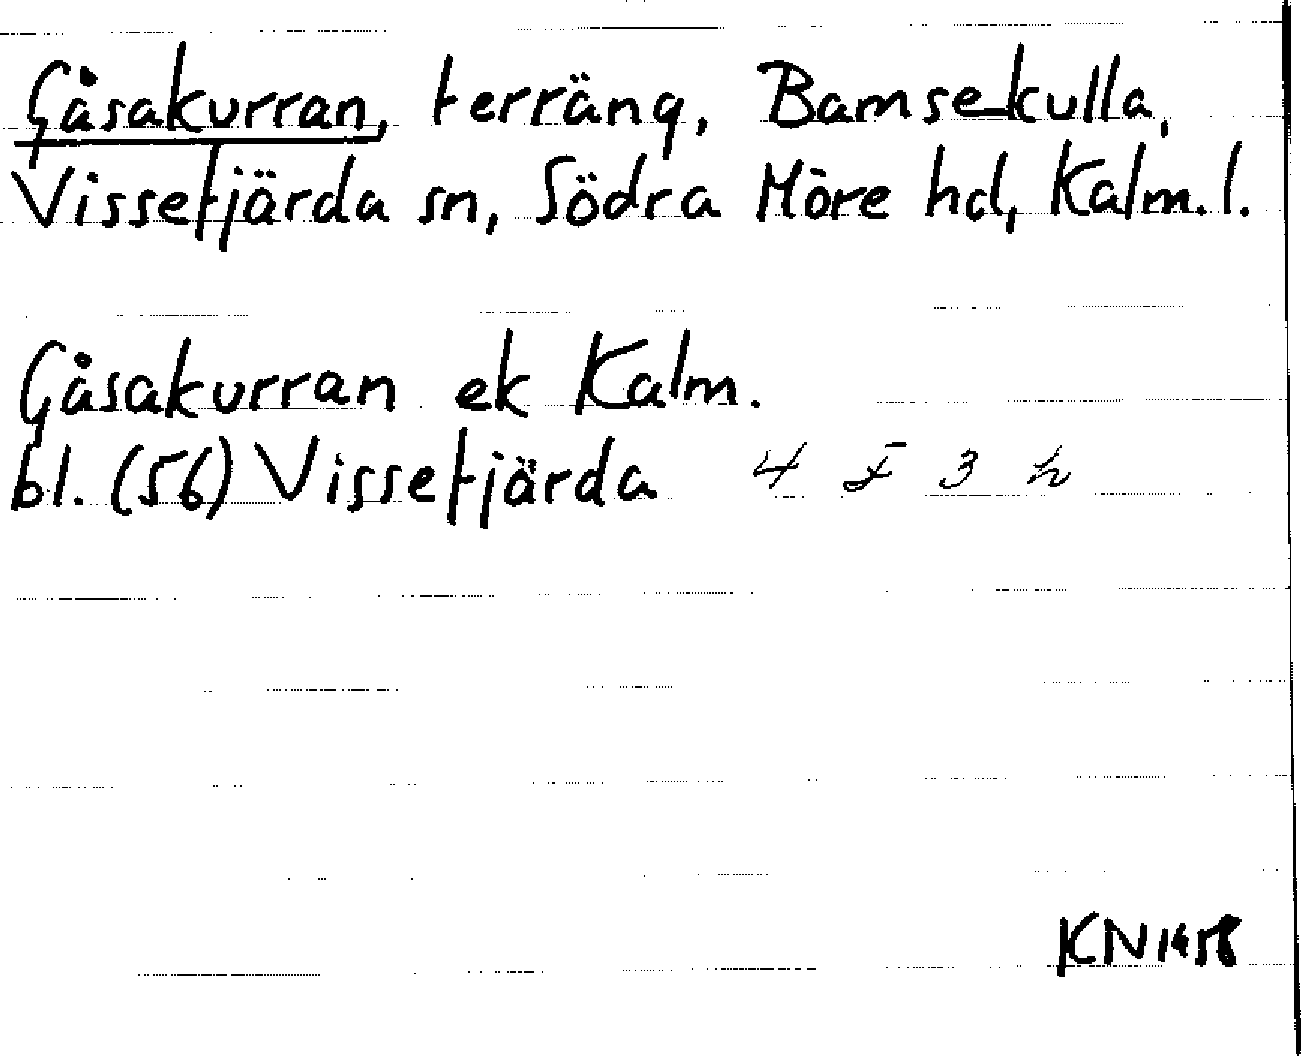 Gåsakurran, terräng, Bamsekulla,
Vissefjärda sn, Södra Möre hd, Kalm. l.
Gåsakurran ek Kalm.
bl. (56) Vissefjärda 4 F 3 h
KN 1958